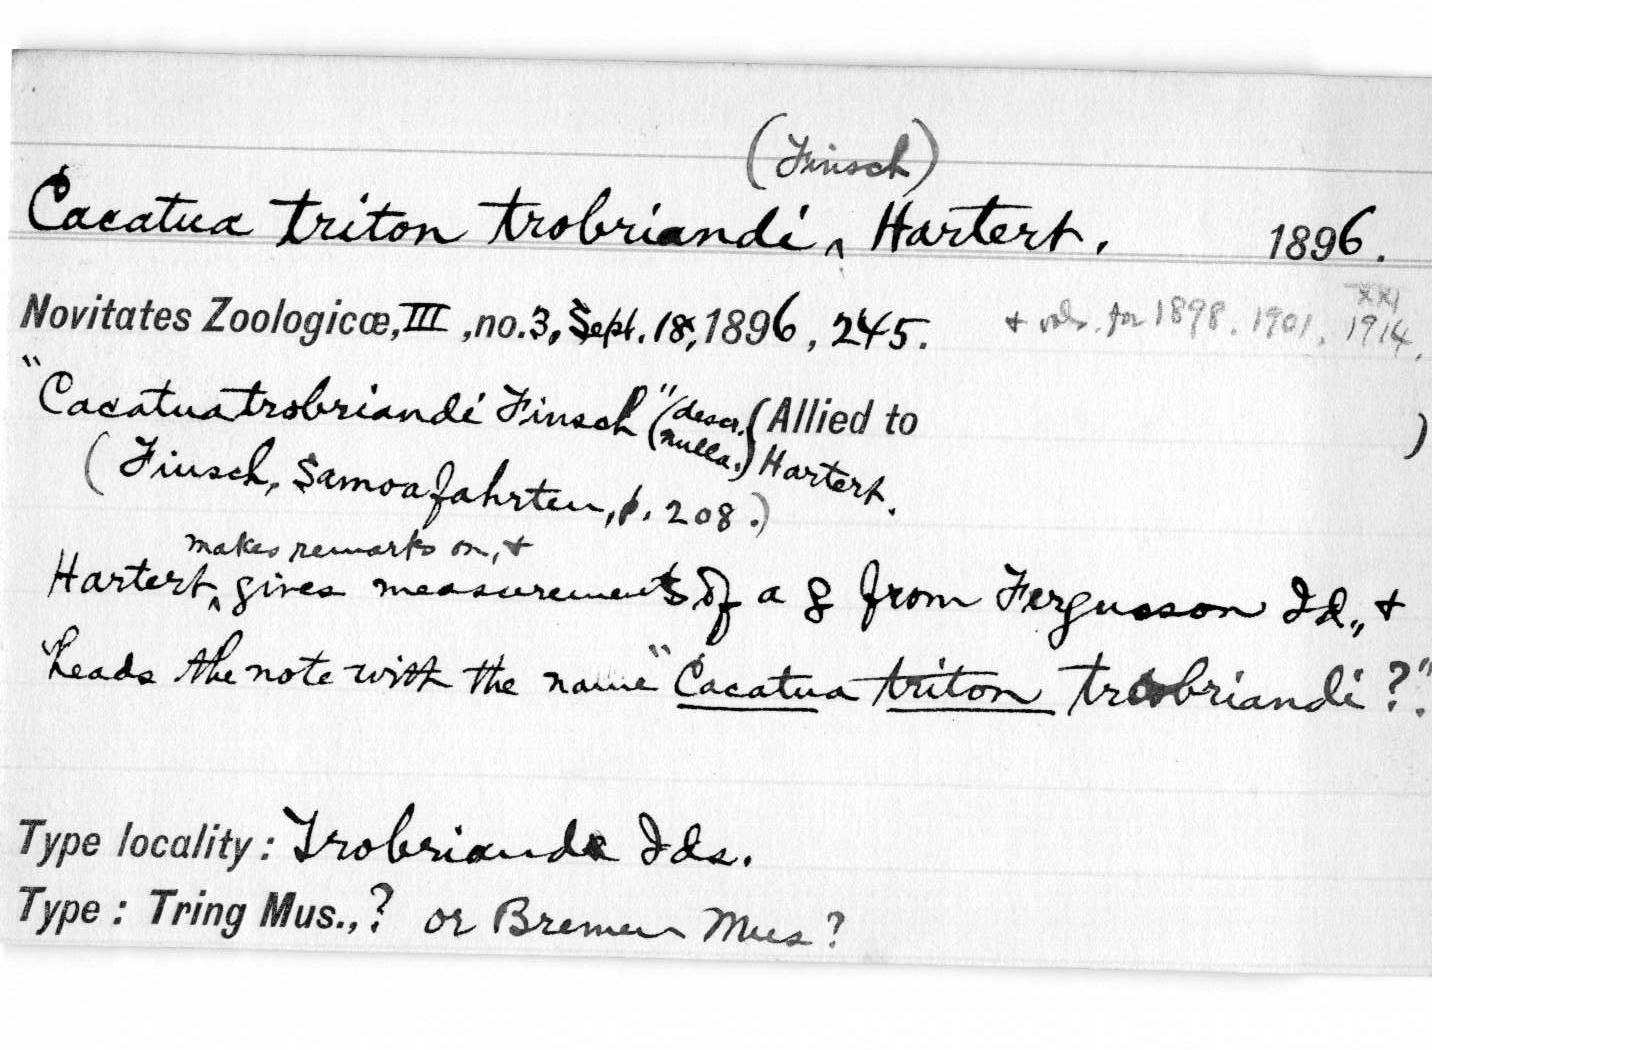 (Finsch)
Cacatua triton trobriandi ‸ Hartert. 1896.
Novitates Zoologicæ, III, no. 3, Sept. 18, 1896, 245. + vols. for 1898. 1901, XXI 1914.
"Cacatua trobriandi Finsch" (descr. nulla.) (Allied to )
(Finsch, Samoafahrten, p. 208.) Hartert.
makes remarks on, +
Hartert ‸ gives measurements of a ♀ from Fergusson Id., +
heads the note with the name "Cacatua triton trobriandi?".
Type locality: Trobriand Ids.
Type: Tring Mus., ? or Bremen Mus?